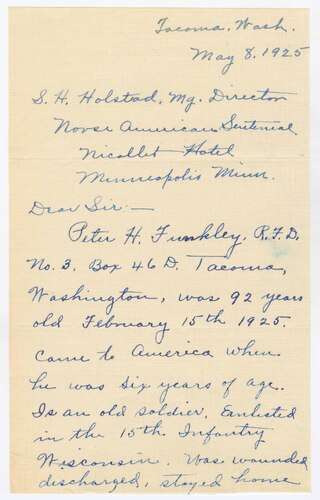 Tacoma, Wash.
May 8, 1925
S. H. Holstad, Mg. Director
Norse American Sentenial
Nicollet Hotel
Minneapolis Minn.
Dear Sir:—
Peter H. Funkley, R.F.D.
No. 3, Box 46 D. Tacoma,
Washington, was 92 years
old February 15th 1925.
Came to America when
he was six years of age.
Is an old soldier, Enlisted
in the 15th Infantry
Wisconsin. Was wounded
discharged, stayed home